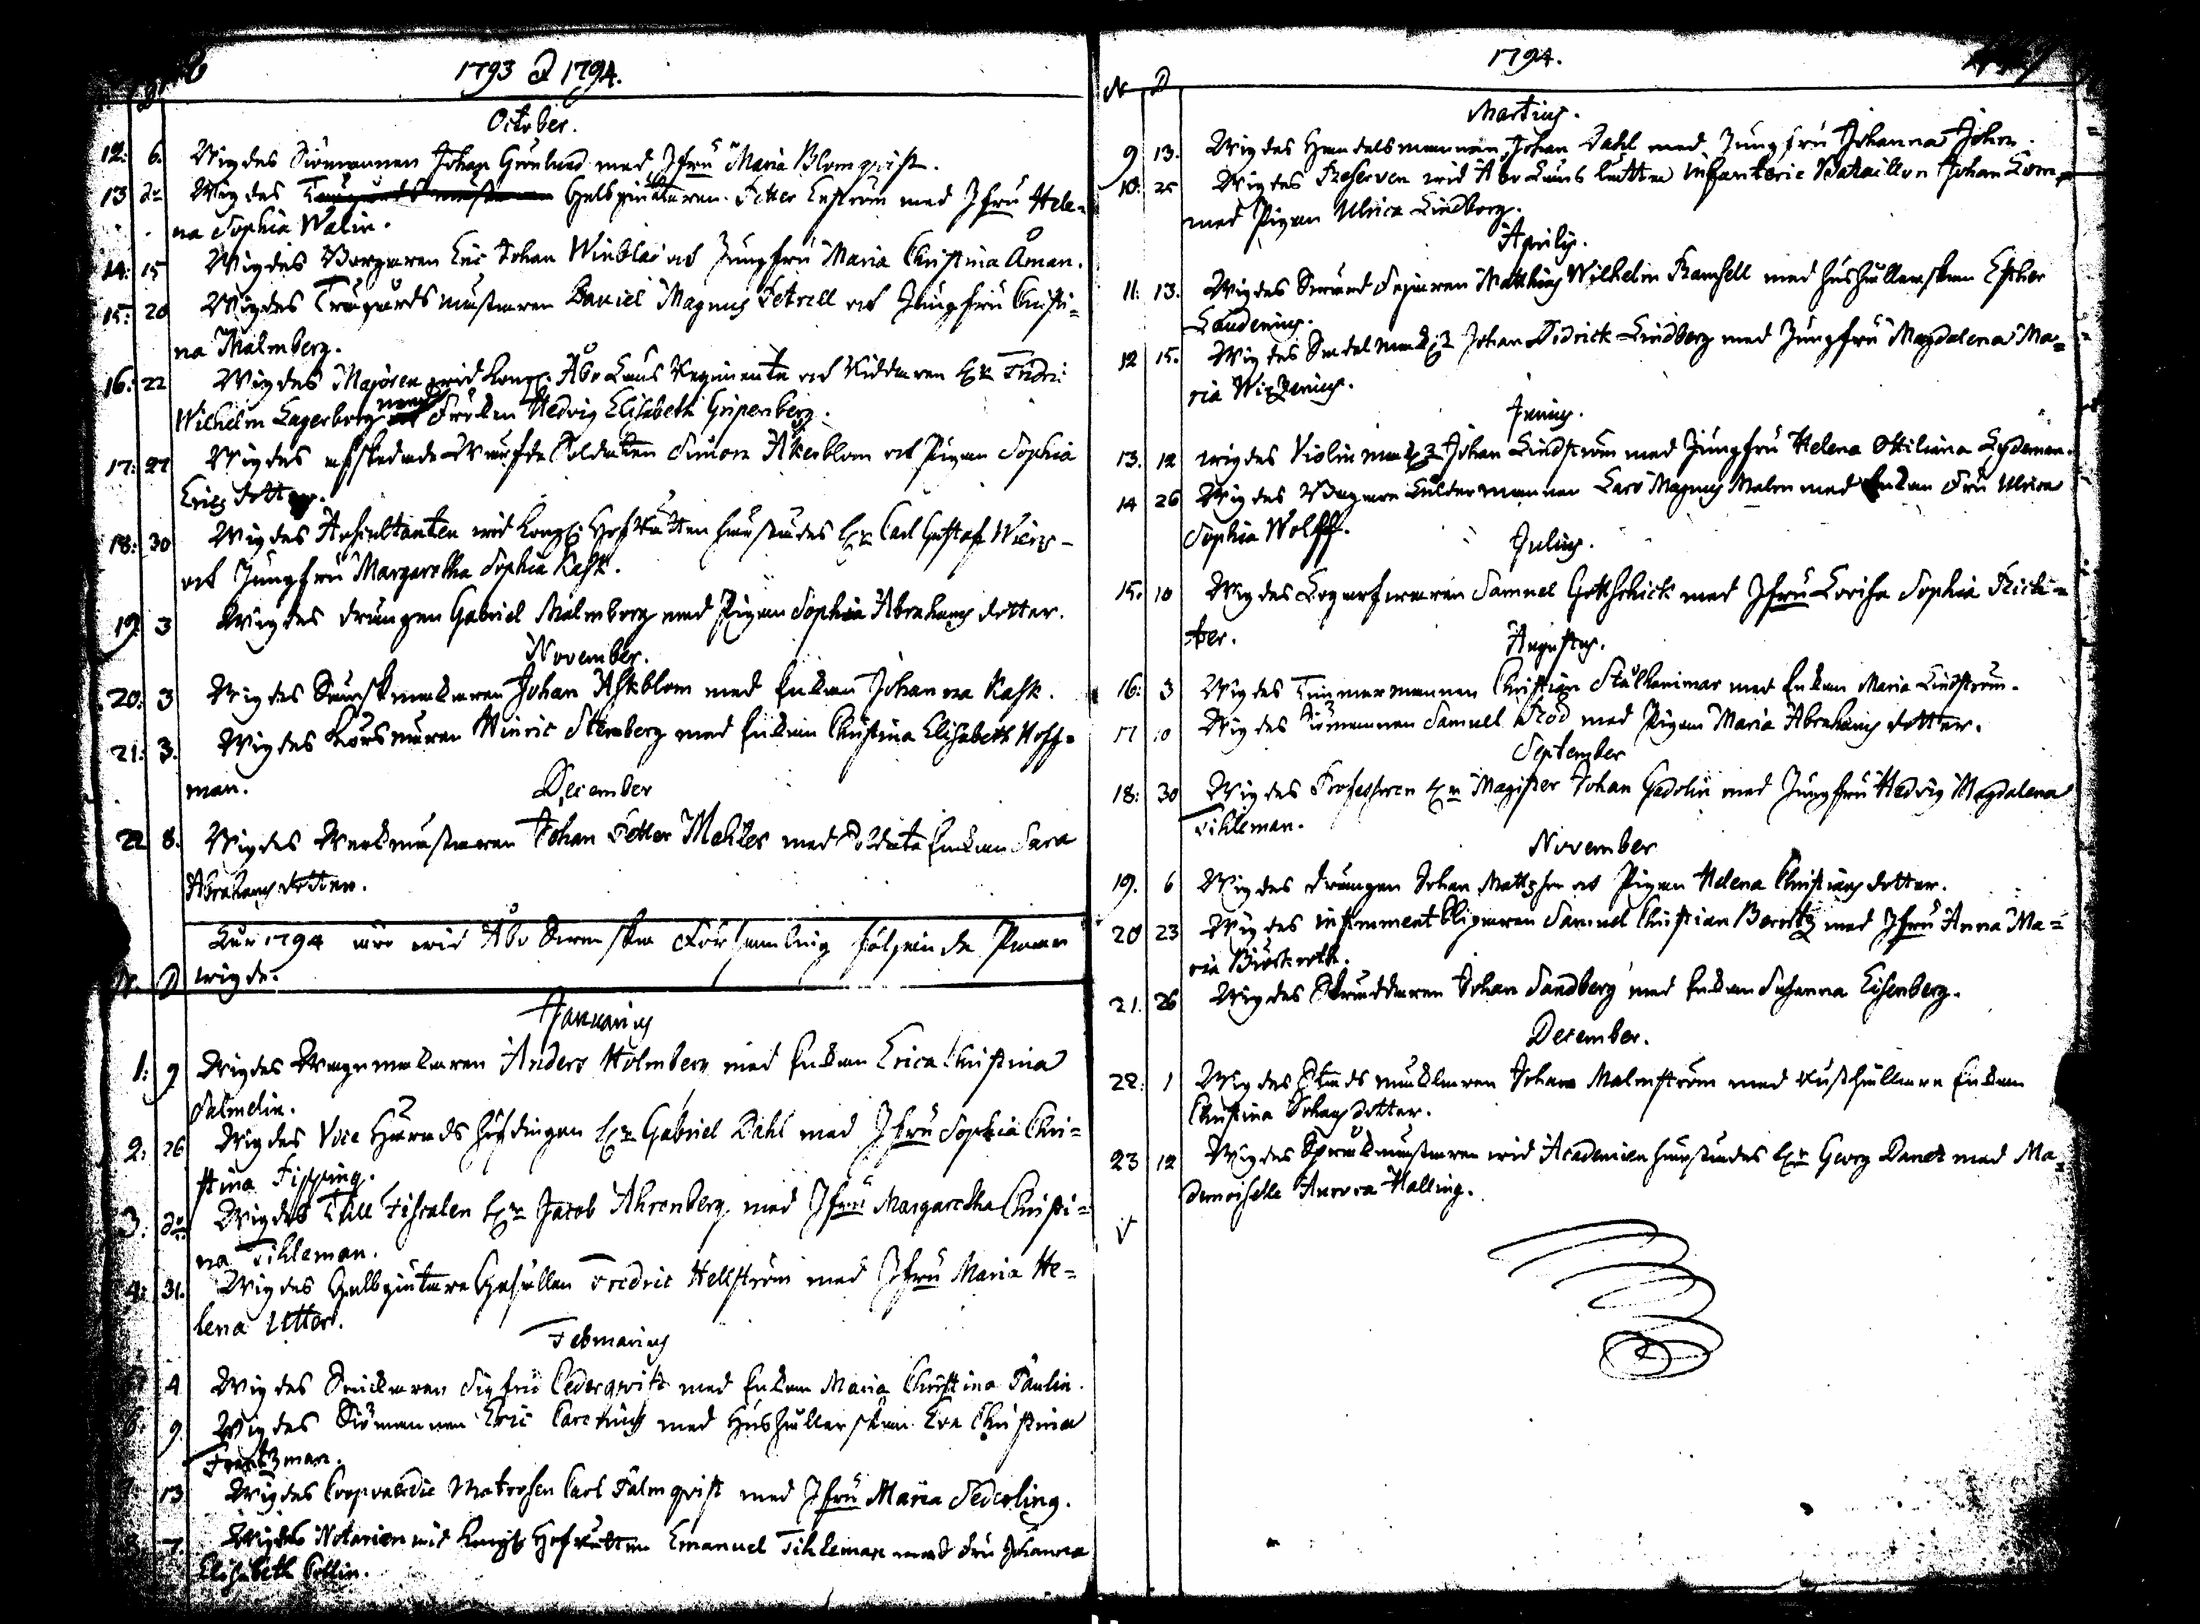 1793 & 1794.
N D
October.
12: 6. Wigdes Siömannen Johan Grönlund med Jfru Maria Blomqvist.
13 do Wigdes Gälbgiutaren Petter Enström med Jfru Hele=
na Sophia Walin.
14: 15 Wigdes Borgaren Eric Johan Winblad och Jungfru Maria Christina Åman.
15: 20 Wigdes Trägårdsmästaren Daniel Magnus Petrell och Jungfru Christi=
na Malmberg.
16: 22 Wigdes Majoren wid Kongl. Åbo Läns Regimente och Riddaren Hr Fridric
Wilhelm Lagerborg med Fröken Hedvig Elisabeth Gripenberg.
17: 27 Wigdes afskedade Soldaten Simon Åkerblom och Pigan Sophia
Erics dotter.
18: 30 Wigdes Auscultanten wid Kongl. HofRätten härstädes Hr Carl Gustaf
och Jungfru Margaretha Sophia Kask.
19: 3 Wigdes drängen Gabriel Malmberg med Pigan Sophia Abrahams dotter.
November.
20: 3 Wigdes Johan Askblom med Enkan Johanna Kask.
21: 3. Wigdes Hinric Stenberg med Enkan Christina Elisabeth Hoff=
man.
December
22 8. Wigdes Werkmästaren Johan Petter Mehler med Soldate Enkan Sara
Abrahams dotter.
Åhr 1794 äro wid Åbo Swenska Församling följande Paar
wigde.
N. D
Januarius
1: 9 Wigdes Wagnmakaren Anders Holmberg med Enkan Erica Christina
Salmelin.
2: 26 Wigdes Vice Häradshöfdingen Hr Gabriel Dahl med Jfru Sophia Chri=
stina Tipping.
3: do Wigdes Tull Fiscalen Hr Jacob Ahrenberg med Jfru Margaretha Christi=
na Tihleman.
4: 31. Wigdes Gälbgiutare Gesällen Fredric Hellström med Jfru Maria He=
lena Utter.
Februarius
4 Wigdes Snickaren Sigfrid Cederqvist med Enkan Maria Christina Paulin.
6: 9 Wigdes Siömannen Eric med Hushållerskan Eva Christina
Frantzman.
13 Wigdes Coopvaerdie Matrosen Carl Palmqvist med Jfru Maria Sederling.
Wigdes Notarien wid Kongl. HofRätten Emanuel Tihleman med Fru Johanna
Elisabeth Pollin.
1794.
N D
Martius.
9 13. Wigdes Handelsmannen Johan Dahl med Jungfru Johanna John.
10. 25 Wigdes Reserven wid Åbo Läns lätta Infanterie Bataillon Johan
med Pigan Ulrica Lindborg.
Aprilis.
11: 13. Wigdes Matthias Wilhelm Ramsell med Hushållerskan Esther
Laudenius.
12 15. Wigdes Sadelmak. Johan Didrick Lindberg med Jungfru Magdalena Ma=
ria Wirzenius.
Junius.
13. 12 wigdes Violinmak. Johan Lindström med Jungfru Helena Ottiliana Lydeman.
14 26 Wigdes Bagare Åldermannen Lars Magnus Malm med Enkan Fru Ulrica
Sophia Wolff.
Julius.
15. 10 Wigdes Samuel Gottschick med Jfru Lovisa Sophia Rich=
ter.
Augustus.
16: 3 Wigdes Timmermannen Christian med Enkan Maria Lindström.
17 10 Wigdes Siömannen Samuel med Pigan Maria Abrahams dotter.
September
18: 30 Wigdes Professoren Hr Magister Johan Gadolin med Jungfru Hedvig Magdalena
Tihleman.
November
19. 6 Wigdes drängen Johan Mattsson och Pigan Helena Christians dotter.
20 23 Wigdes Samuel Christian med Jfru Anna Ma=
ria
21. 26 Wigdes Skräddaren Johan Sandberg med Enkan Susanna Eisenberg.
December.
22: 1 Wigdes Stads mäklaren Johan Malmström med Enkan
Christina Johans dotter.
23 12 Wigdes Språkmästaren wid Academien härstädes Hr Georg Danet med Ma=
demoiselle Aurora Halling.